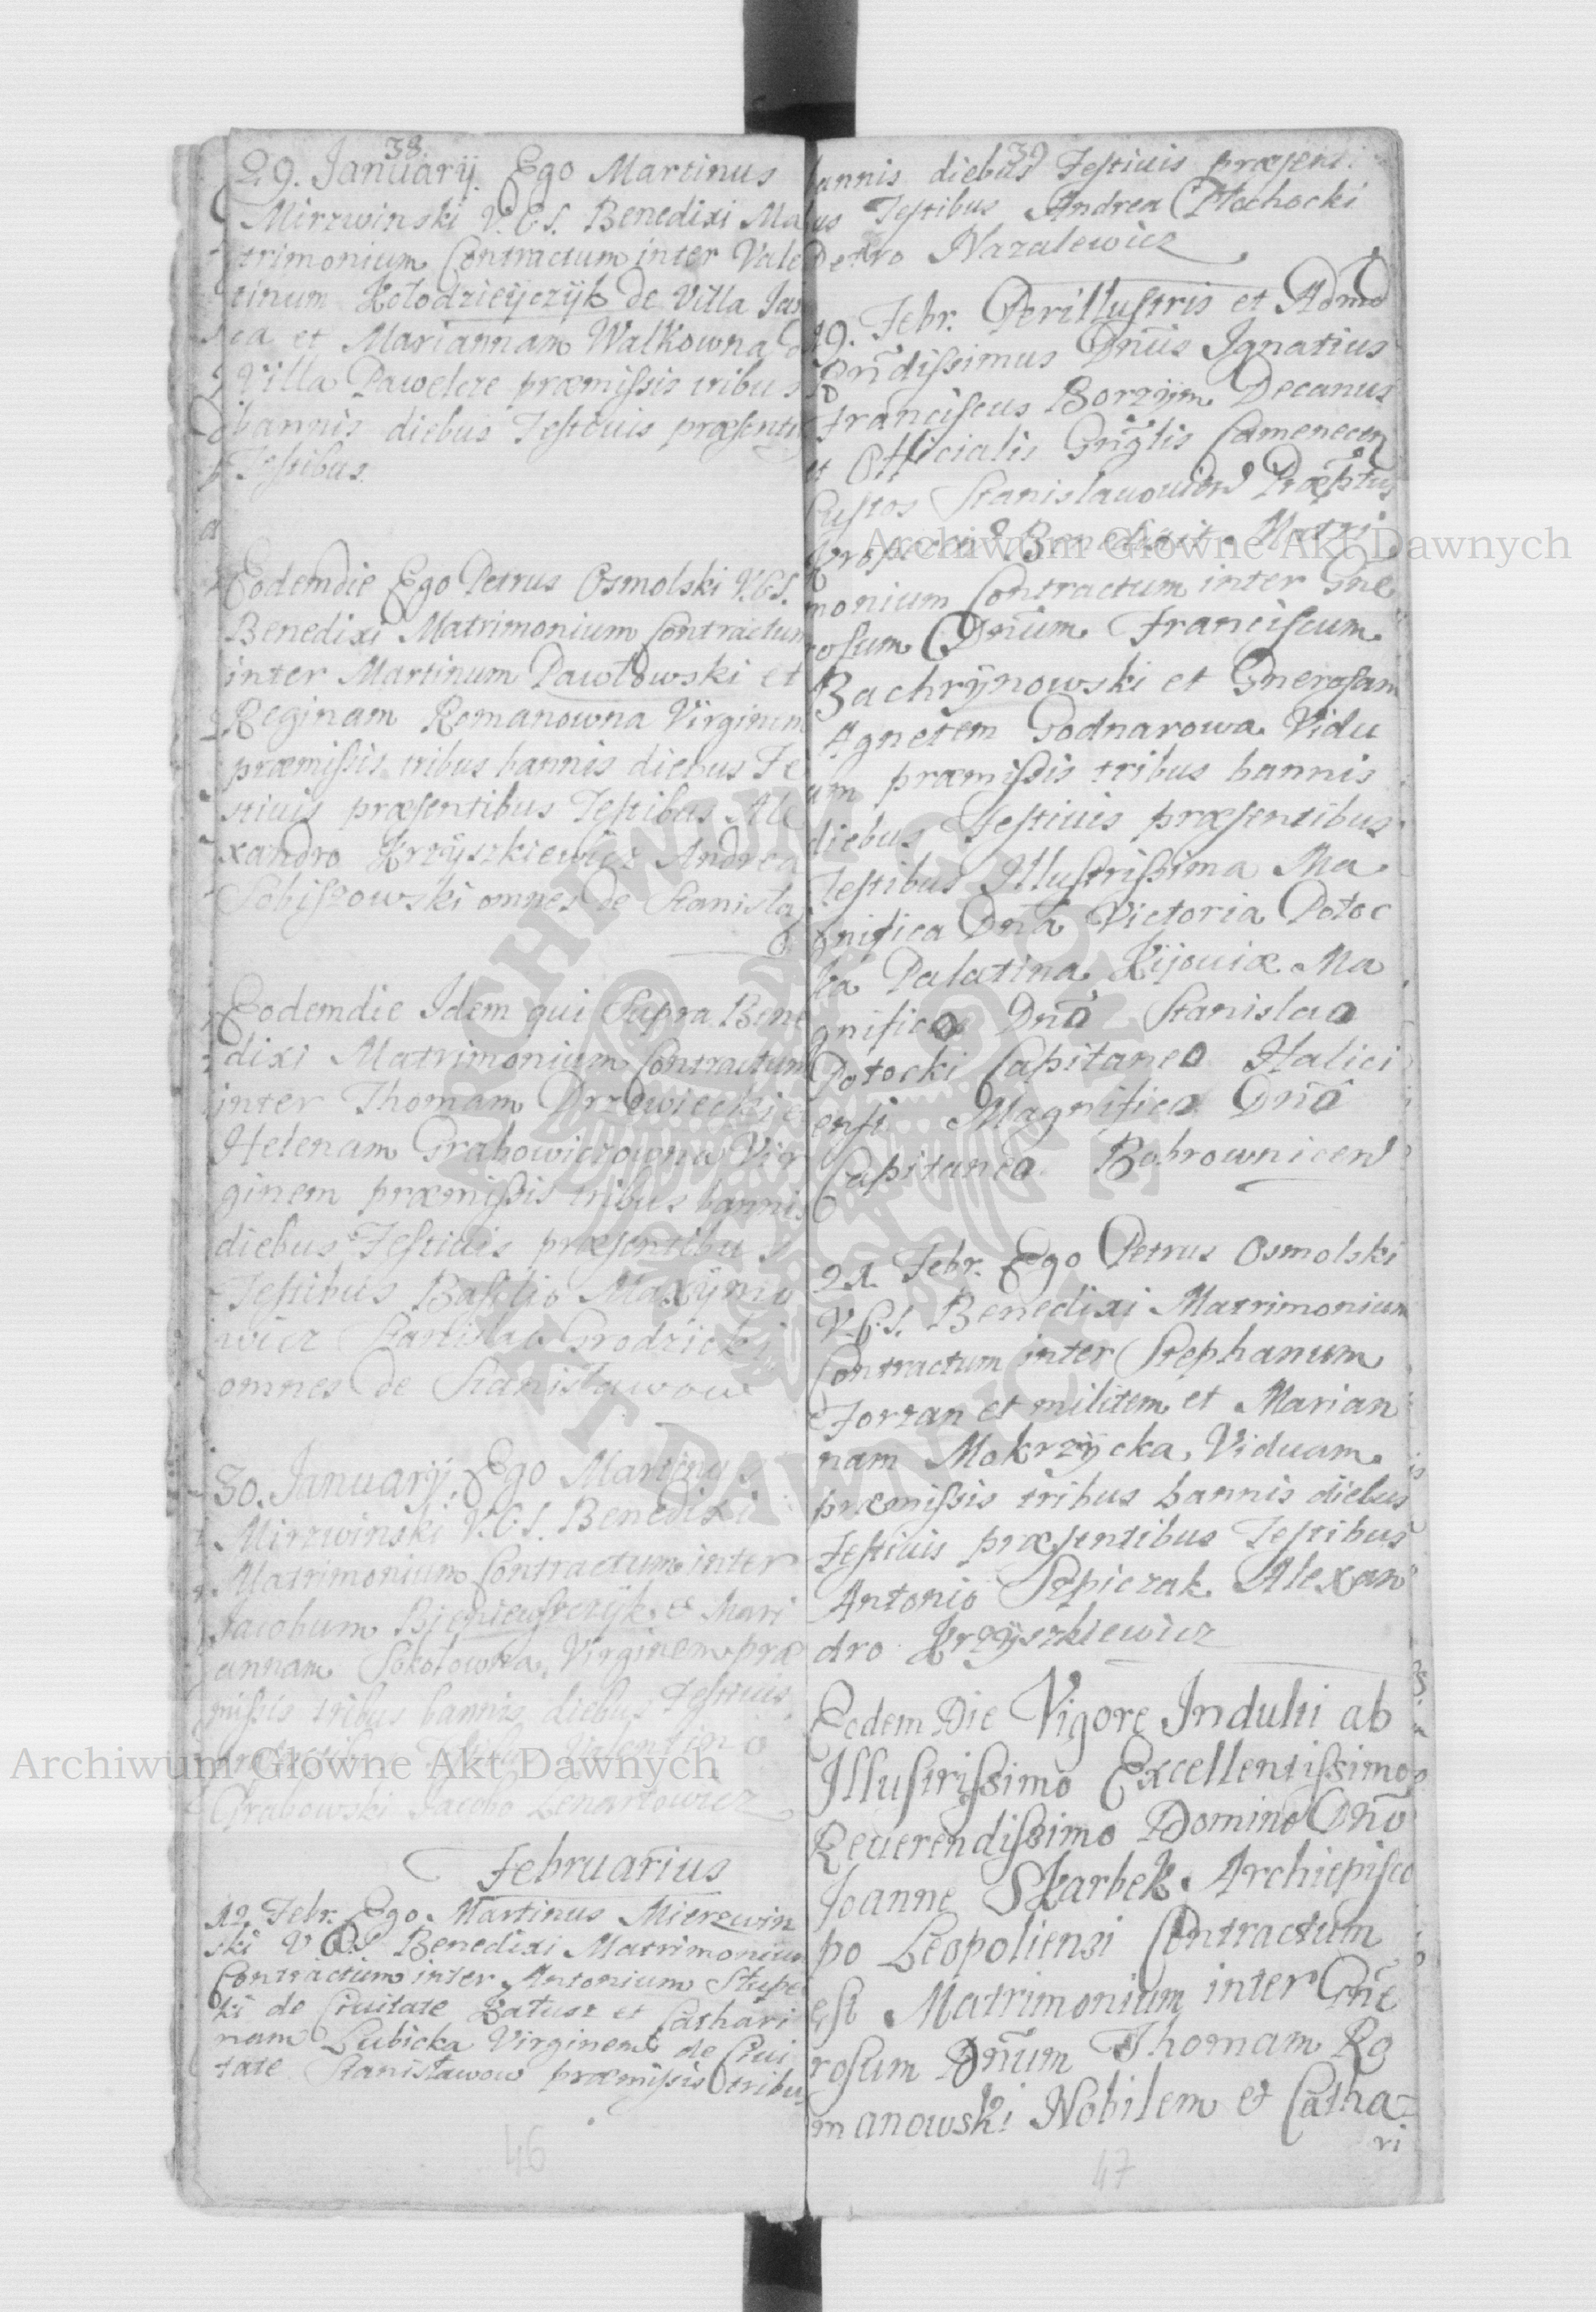 38
29. Januarij. Ego Martinus
Mirzwinski V.C.S. Benedixi Ma
trimonium Contractum inter Vale
tinum Kołodzieyczyk de Villa Jas
ca et Mariannam Walkowna
Villa Pawelcze præmissis tribus
bannis diebus Festivis præsenti
Testibus.
Eodemdie Ego Petrus Osmolski V.C.S.
Benedixi Matrimonium Contractum
inter Martinum Pawłowski et
Reginam Romanowna Virginem
præmissis tribus bannis diebus Fe
stivis præsentibus Testibus Ale
xandro Krzyszkiewicz Andrea
Sobiszowski omnes de Stanisła
Eodemdie Idem qui Supra Bene
dixi Matrimonium Contractum
inter Thomam Drzewiecki e
Helenam Grabowiczowna Vir
ginem præmissis tribus bannis
diebus Festivis præsentibus
Testibus Basilio Maxÿmo
wicz Stanislao Grodzicki
omnes de Stanisławow
30. Januarij. Ego Martinus
Mirzwinski V.C.S. Benedixi
Matrimonium Contractum inter
Jacobum et Mari
annam Sokołowna Virginem præ
missis tribus bannis diebus Festivis
præsentibus Testibus Valentino
Grabowski Jacobo Lenartowicz
Februarius
12 Febr. Ego Martinus Mierzwin
ski V C S Benedixi Matrimonium
Contractum inter Antonium Stupe
ki de Civitate Kałusz et Cathari
nam Lubicka Virginem de Civi
tate Stanisławow præmissis tribu
46
39
bannis diebus Festivis præsenti
us Testibus Andrea Płochocki
Petro Nazalewicz
19. Febr. Perillustris et Admd
Rndissimus Dnus Ignatius
Franciscus Borzym Decanus
et Officialis Gnglis Camenecen
Custos Stanislauouien Præptus
Benedixit Matri
monium Contractum inter Gne
rosum Dnum Franciscum
Bachrÿnowski et Gnerosam
Agnetem Godnarowa Vidu
am præmissis tribus bannis
diebus Festivis præsentibus
Testibus Illustrissima Ma
gnifica Dna Victoria Potoc
ka Palatina Kijouiæ Ma
gnifico Dno Stanislao
Potocki Capitaneo Halici
ensi Magnifico Dno
Capitaneo Bobrownicen
21. Febr. Ego Petrus Osmolski
V.C.S. Benedixi Matrimonium
Contractum inter Stephanum
Forzan et militem et Marian
nam Mokrzÿcka Viduam
præmissis tribus bannis diebus
Festivis præsentibus Testibus
Antonio Szpiczak Alexan
dro Krzyszkiewicz
Eodem Die Vigore Indulti ab
Illustrissimo Excellentissimo
Reverendissimo Domino Dno
Joanne Skarbek Archiepisco
po Leopoliensi Contractum
est Matrimonium inter Gne
rosum Dnum Thomam Ro
manowski Nobilem et Catha
ri
47
Archiwum Głowne Akt Dawnych
Archiwum Głowne Akt Dawnych
ARCHIWUM GŁOWNE AKT DAWNYCH